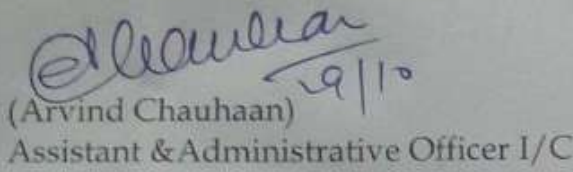 Chauhan
29/10
(Arvind Chauhaan)
Assistant & Administrative Officer I/C